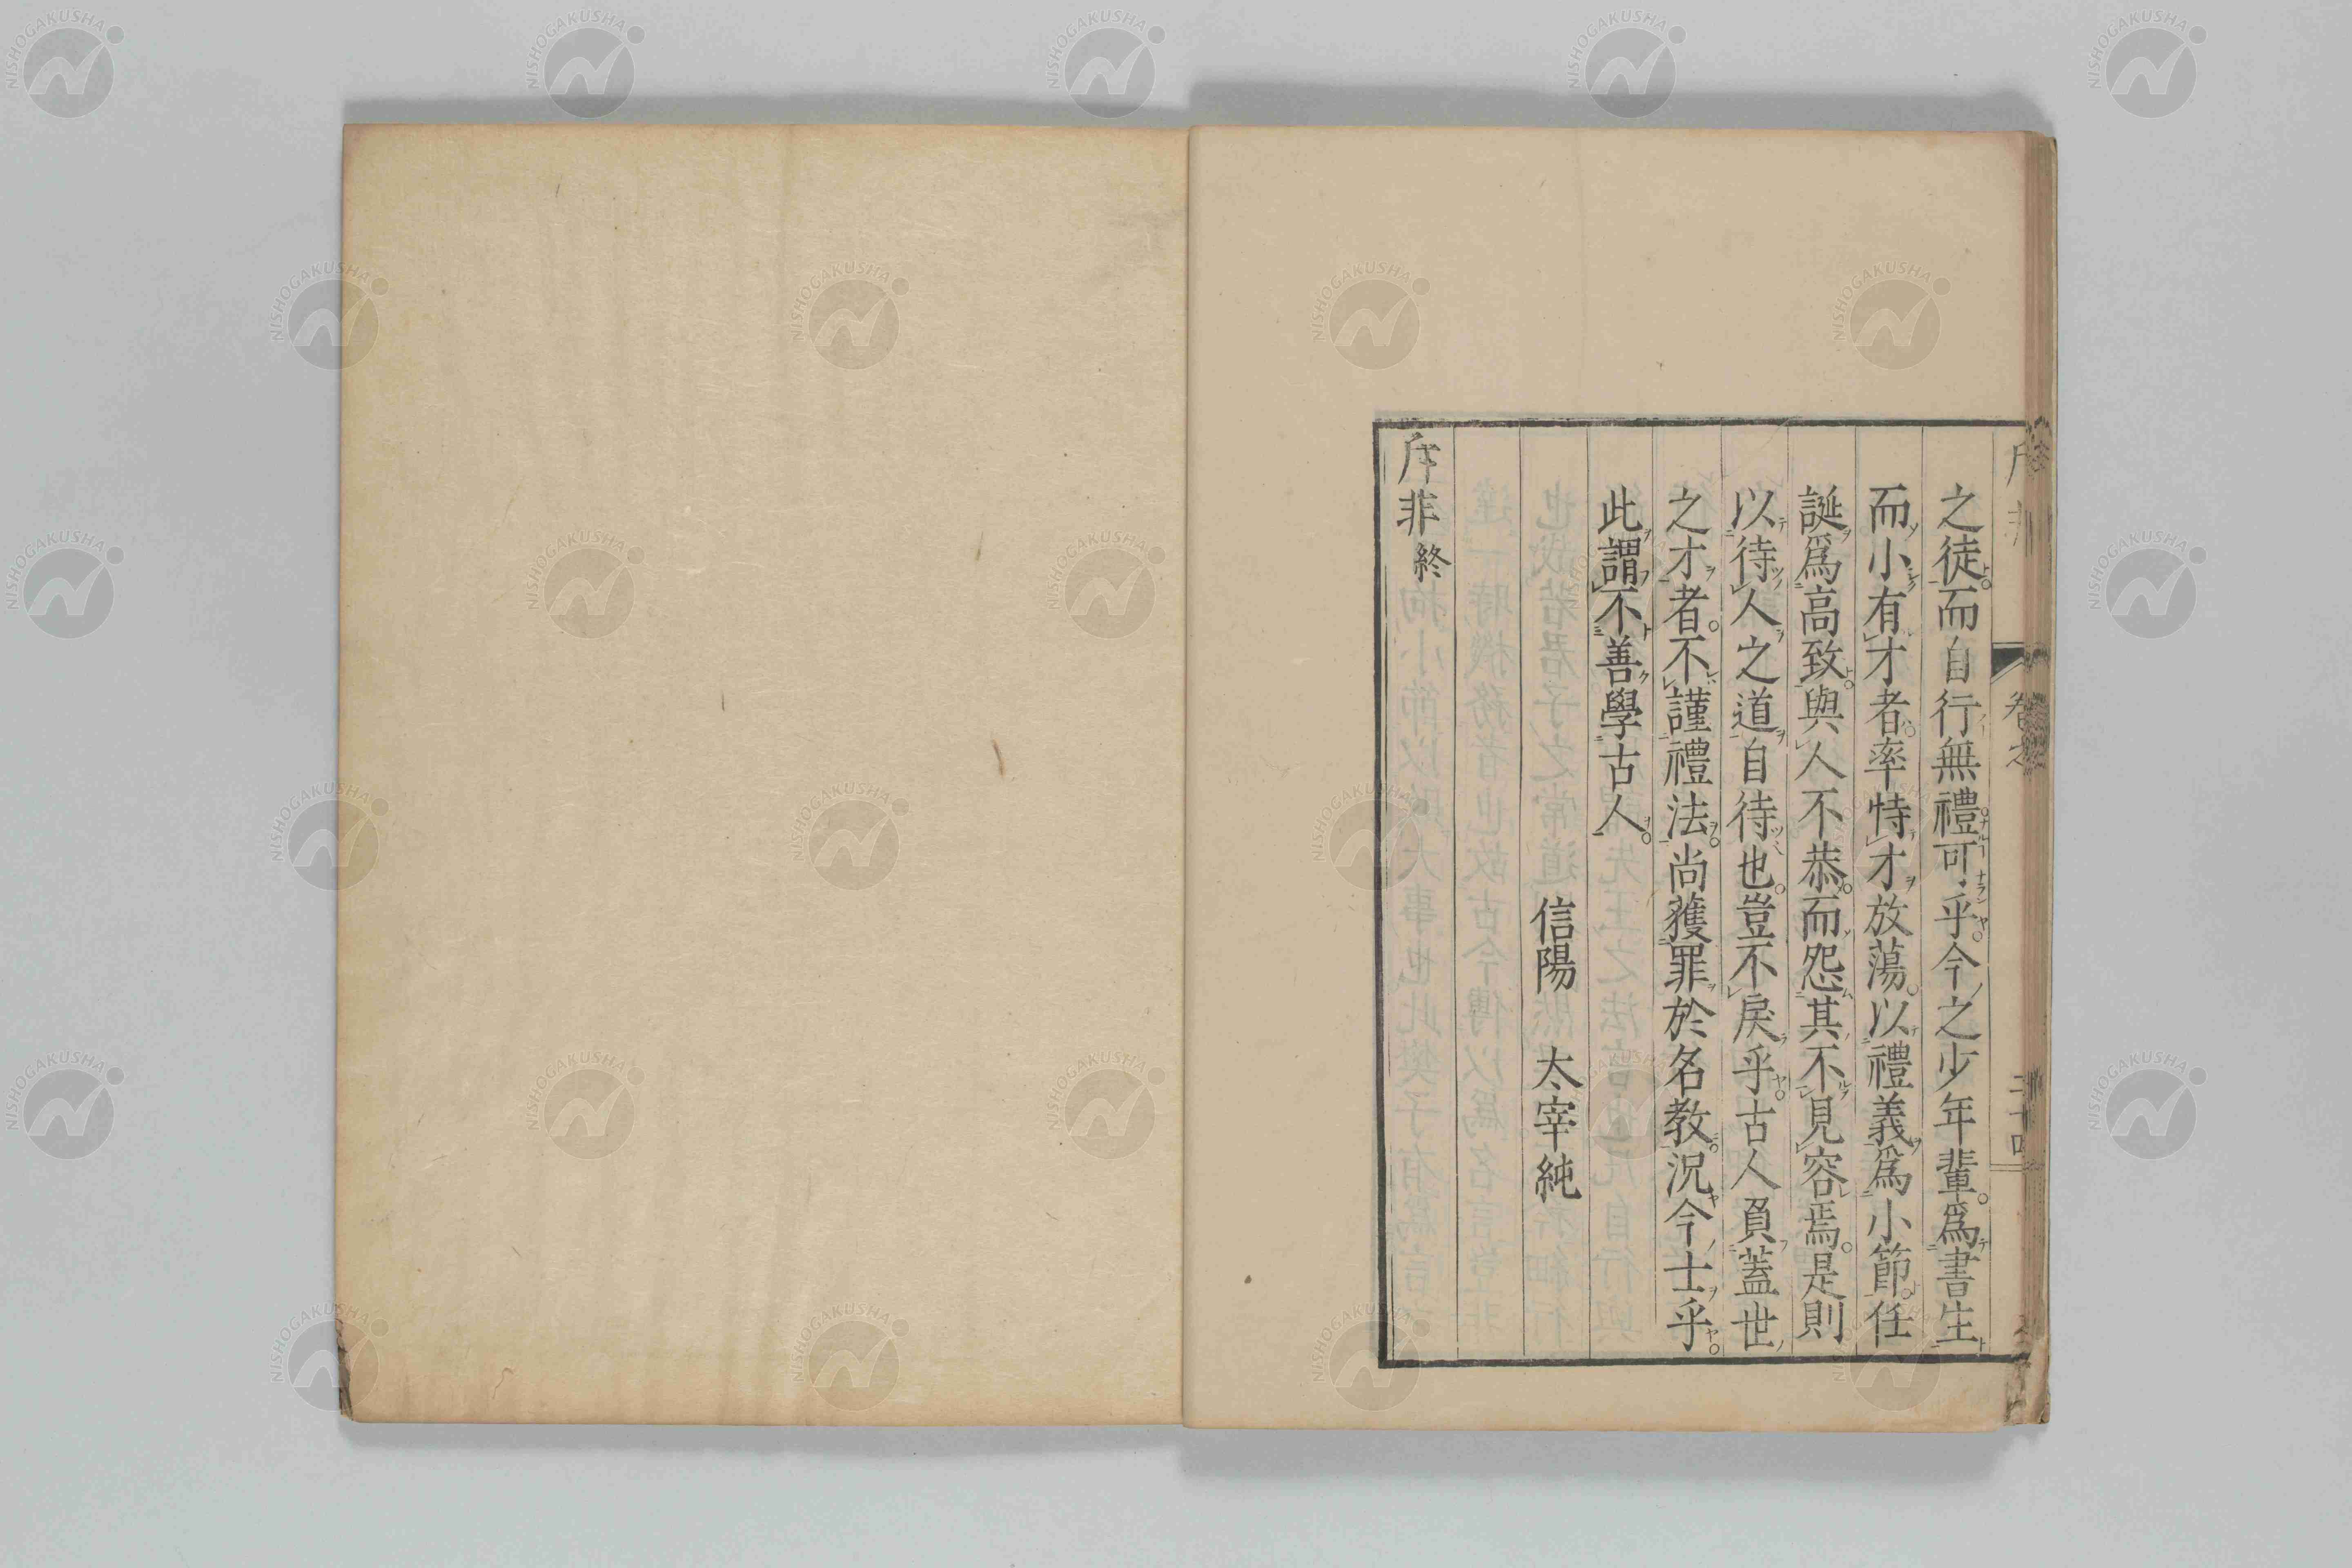 之徒而自行無禮可乎今之少年輩爲書生
而小有才者率恃才放蕩以禮義爲小節任
誕爲高致與人不恭而怨其不見容焉是則
以待人之道自待也豈不戾乎古人負蓋世
之才者不謹禮法尚獲罪於名教況今士乎
此謂不善學古人
信陽 太宰純
斥非終
NISHOGAKUSHA